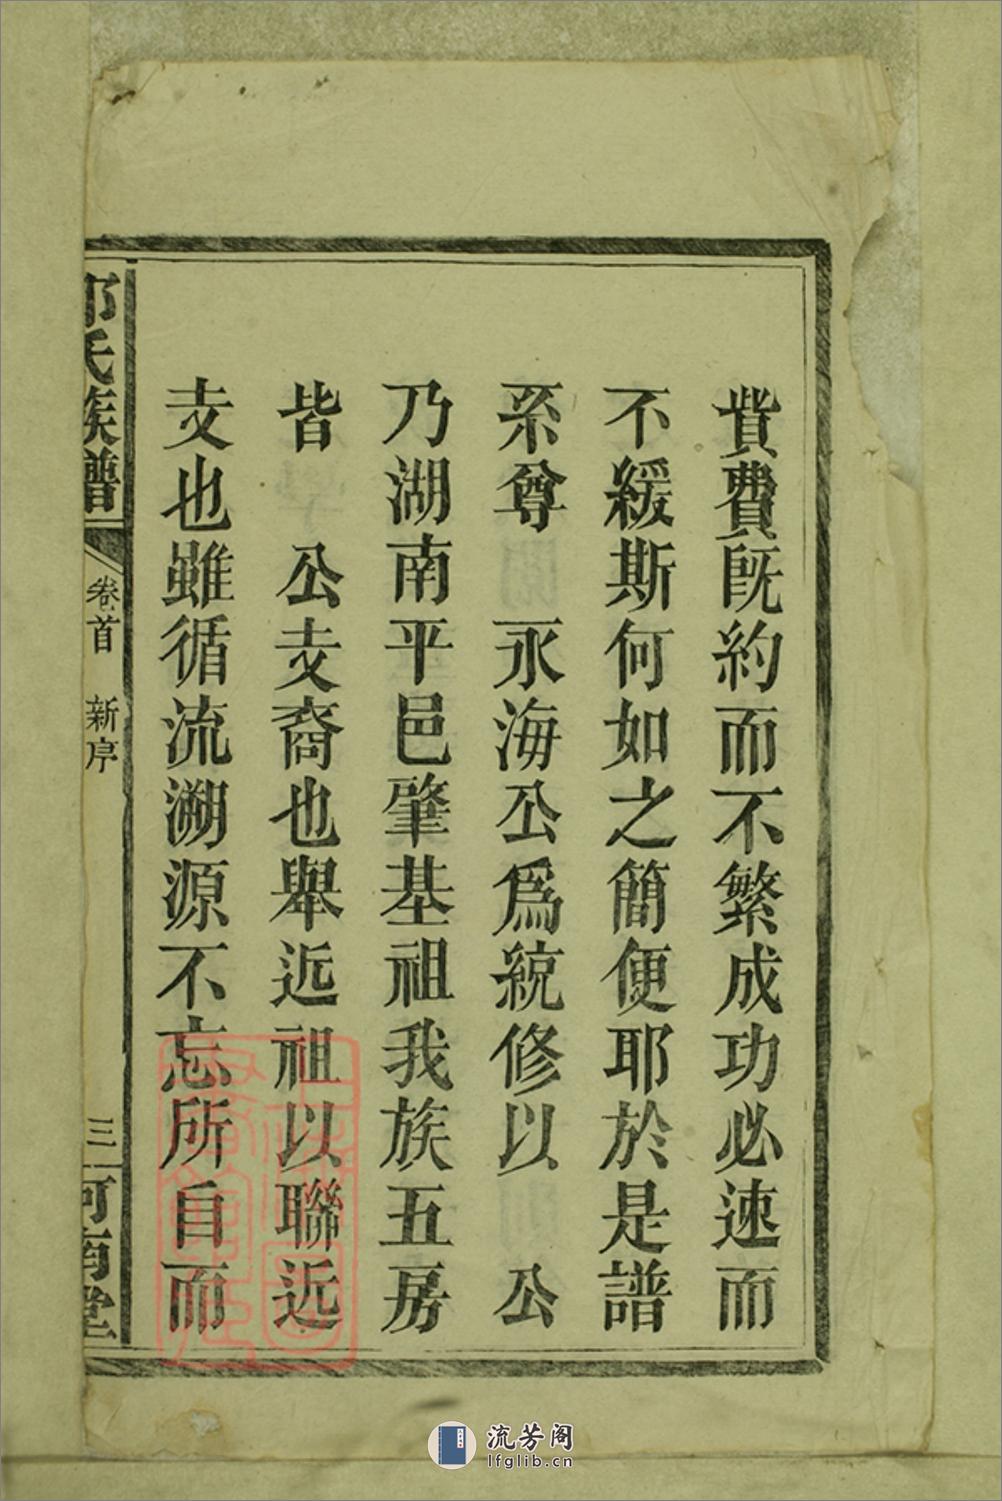 貲費既約而不繁成功必速而
不緩斯何如之簡便耶於是譜
系尊 永海公爲統修以 公
乃湖南平邑肇基祖我族五房
皆 公支裔也舉近祖以聯近
支也雖循流溯源不忘所自而
氏族譜
卷首 新序
三
河南堂
流芳阁
lfglib.cn